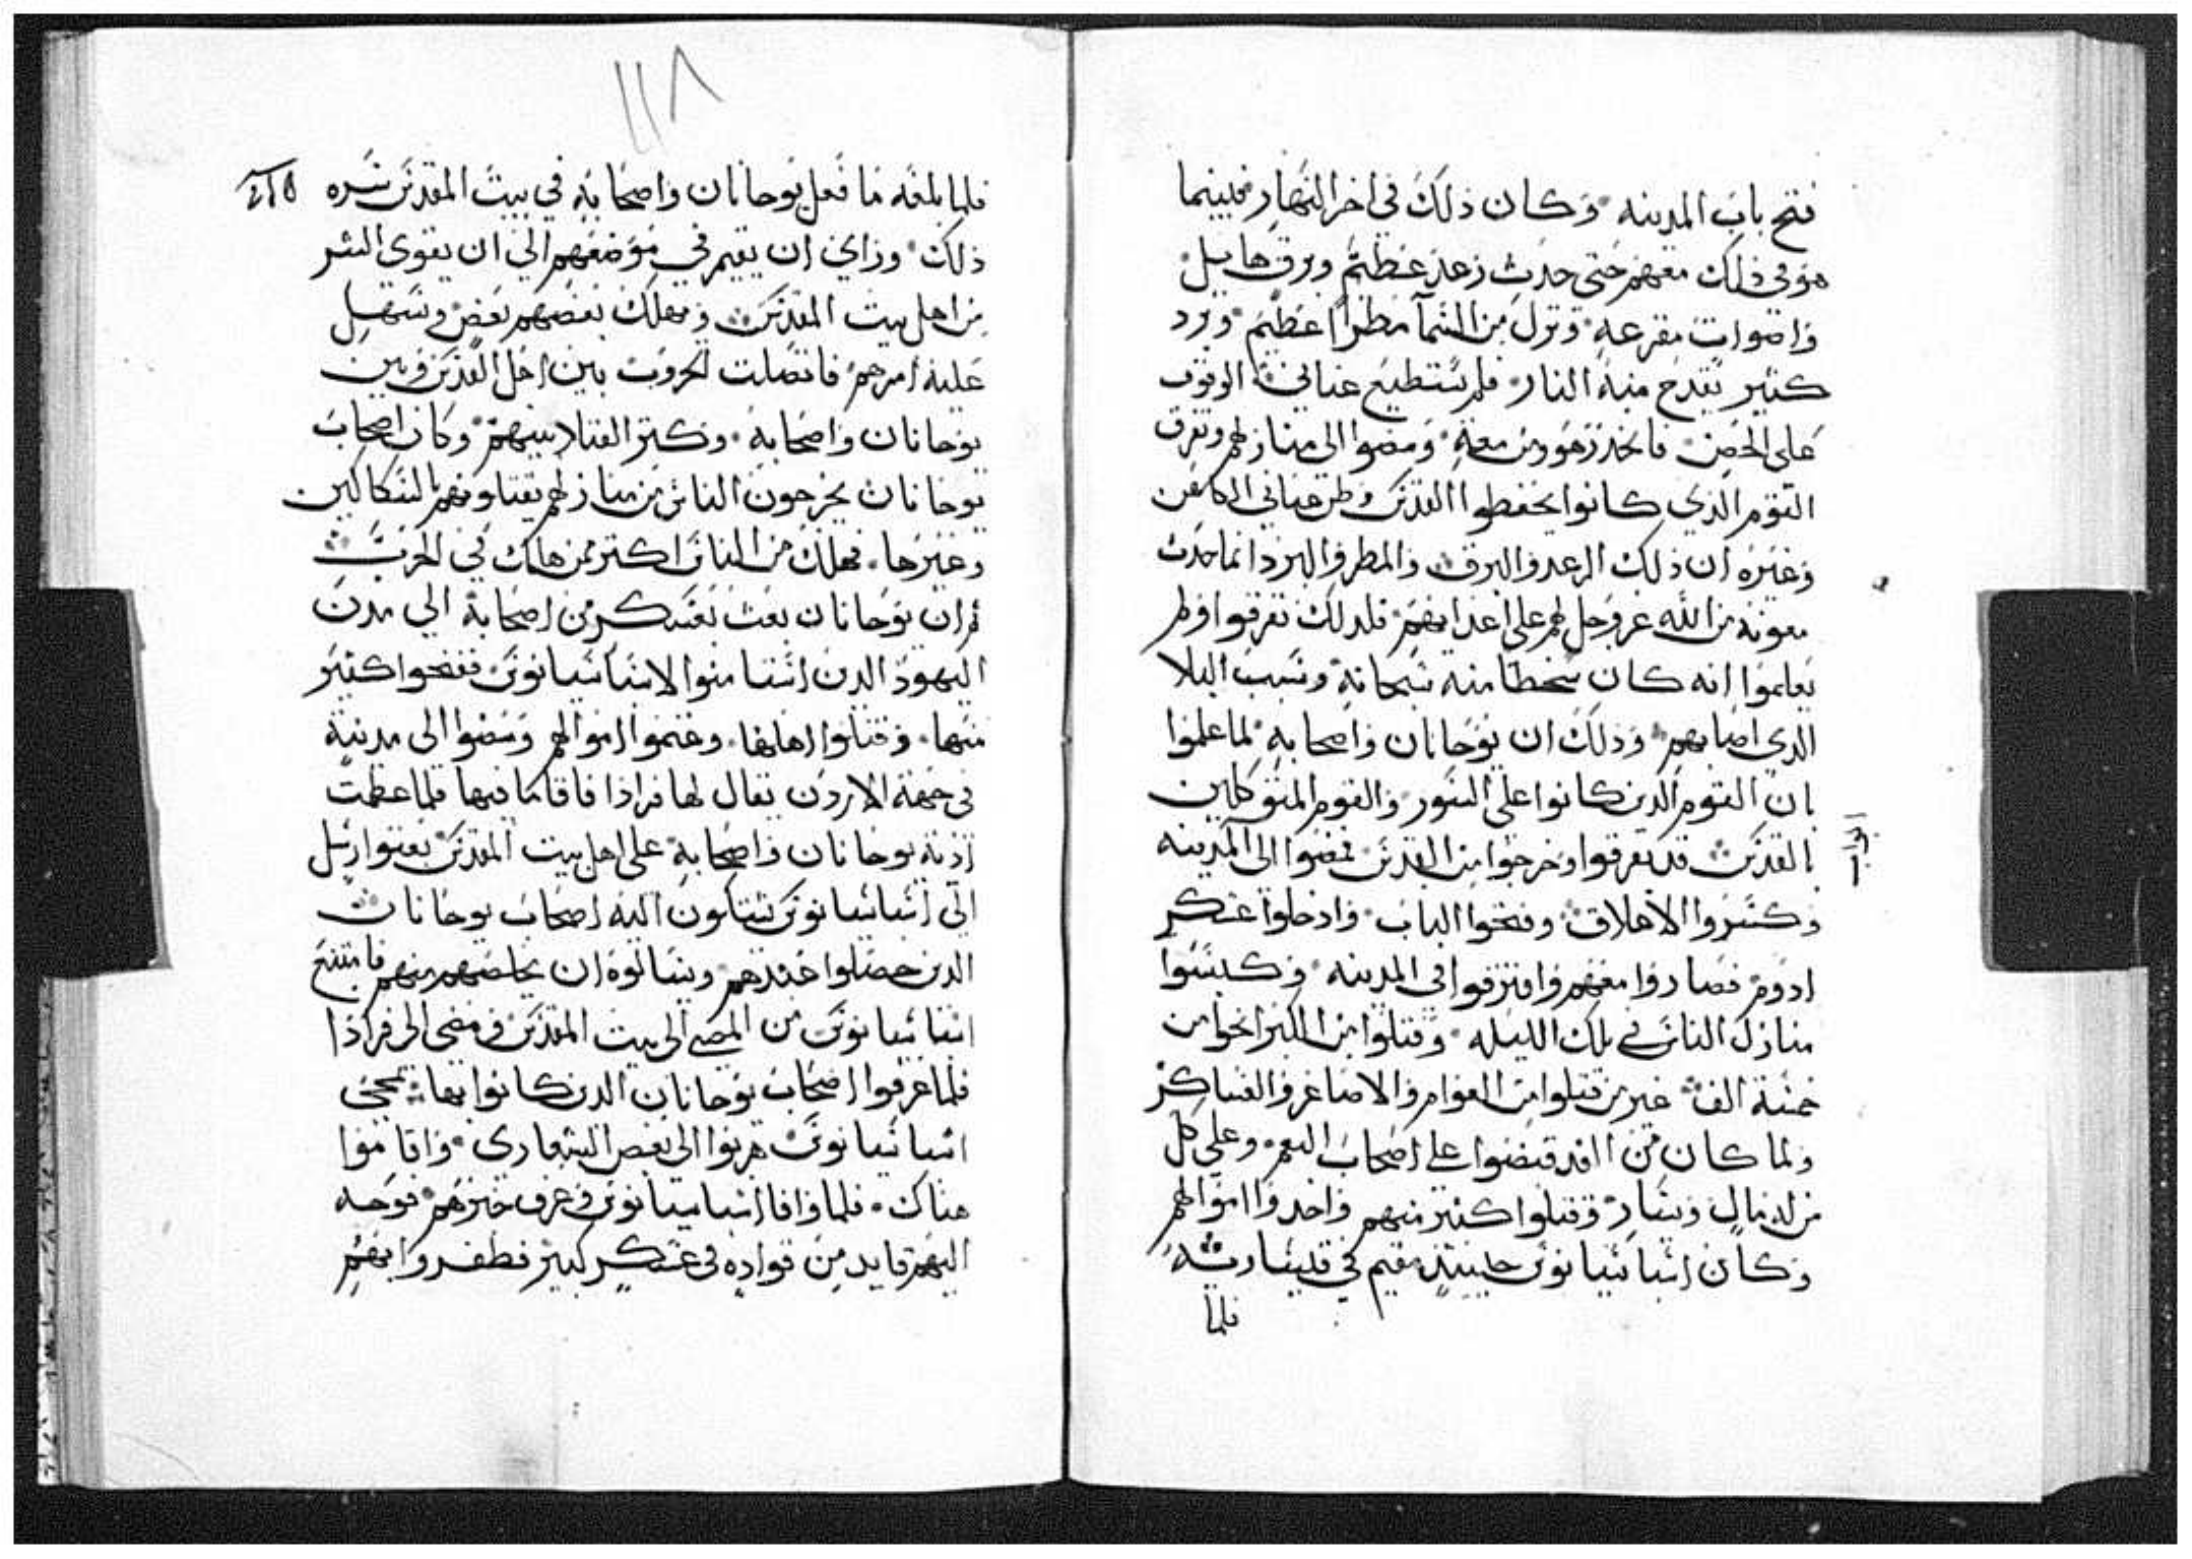 فتح باب المدينه وكان ذلك في اخر النهار فبينما
هو في ذلك معهم حتى حدث رعد عظيم وبرق هايل
واصوات مفزعه ونزل من السمآ مطراً عظيم وبرد
كثير يقدح منه النار فلم يستطيع عناني الوقوف
على الحصن فانحدر هو ومن معه ومضوا الى منازلهم وتفرق
القوم الدي كانوا يحفطوا القدس وظن عناني الكاهن
وغيره ان ذلك الرعد والبرق والمطر والبرد انما حدث
معونه من الله عز وجل لهم على اعدايهم فلدلك تفرقوا ولم
يعلموا انه كان سخطا منه سبحانه وسبب البلا
الدي اصابهم وذلك ان يوحانان واصحابه لما علموا
بان القوم الدين كانوا على السور والقوم المتوكلين
بالقدس قد تفرقوا وخرجوا من القدس فمضوا الى المدينه
وكسروا الاغلاق وفتحوا الباب وادخلوا عسكر
ادوم فصاروا معهم وافترقوا في المدينه وكبسوا
منازل الناس في تلك الليله وقتلوا من الكبرا نحوا من
خمسة الف غير من قتلوا من العوام والاصاغر والعساكر
ولما كان من الغد قبضوا على اصحاب النعم وعلى كل
من له مال ويسار وقتلوا كثير منهم واخدوا اموالهم
وكان اسباسيانوس حينيذ مقيم في قيسارية
فلما
١١٨
فلما بلغه ما فعل يوحانان واصحابه في بيت المقدس سره
ذلك وراي ان يقيم في موضعهم الي ان يقوى الشر
من اهل بيت المقدس ويهلك بعضهم بعض ويسهل
عليه امرهم فاتصلت الحروب بين اهل القدس وبين
يوحانان واصحابه وكتر القتلا بينهم وكان اصحاب
يوحانان يخرجون الناس من منازلهم يقتلوهم بالسكاكين
وغيرها فهلك من الناس اكتر ممن هلك في الحرب
ثم ان يوحانان بعث بعسكر من اصحابه الي مدن
اليهود الدين استامنوا لاسباسيانوس ففتحوا كثير
منها وقتلوا اهلها وغنموا اموالهم ومضوا الى مدينة
في جهة الاردن يقال لها فرادا فاقاما فيها فلما عظمت
اذية يوحانان واصحابه على اهل بيت المقدس بعتوا رسل
الى اسباسيانوس يشكون اليه اصحاب يوحانان
الدين حصلوا عندهم ويسالوه ان يخلصهم منهم فامتنع
اسباسيانوس من المضي الى بيت المقدس ومضى الى فرادا
فلما عرفوا اصحاب يوحانان الدين كانوا بها بمجي
اسباسيانوس هربوا الى بعض الشعاري واقاموا
هناك فلما وافا اسباسيانوس وعرف خبرهم توجه
اليهم قايد من قواده في عسكر كبير فظفروا بهم